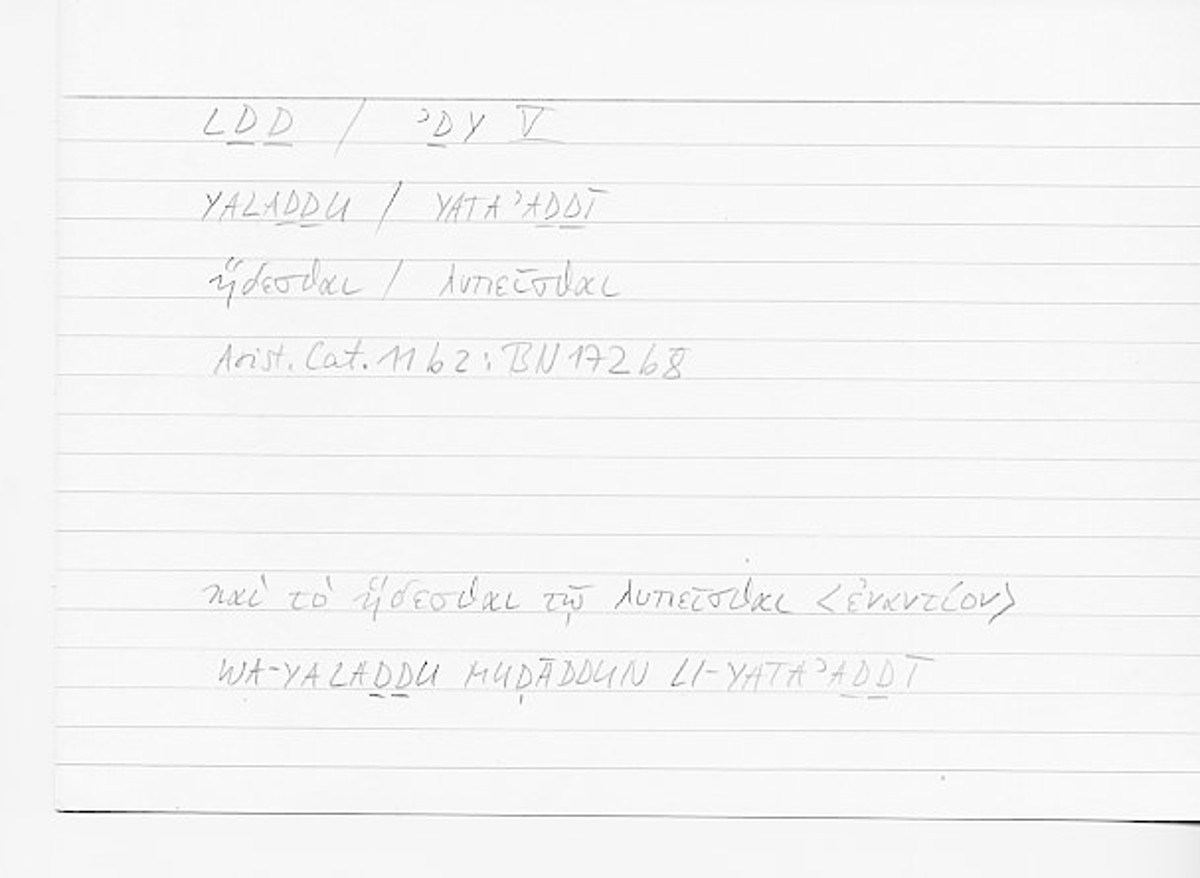 LḎḎ / ʾḎY V
YALAḎḎU / YATAʾAḎḎĪ
ἥδεσθαι / λυπεῖσθαι
Arist. Cat. 11b2 : BN 172b8
καὶ τὸ ἥδεσθαι τῷ λυπεῖσθαι <ἐναντίον>
WA-YALAḎḎU MUḌĀDDUN LI-YATAʾAḎḎĪ